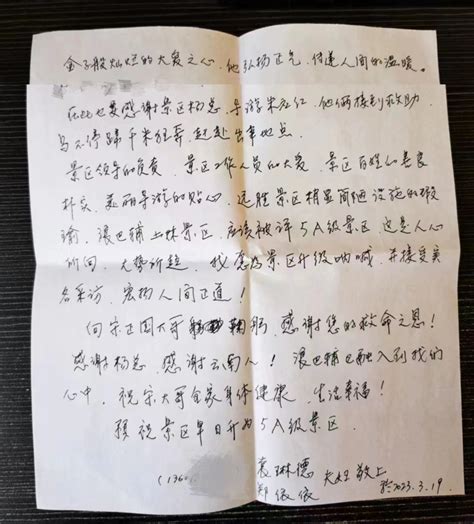 金子般灿烂的大爱之心，他弘杨正气，传递人间的温暖。
在此也要感谢景区杨总，导游宋红仁，他俩接到救助，
马不停蹄千米狂奔，赶赴出事地点。
景区领导的负责，景区工作人员的大爱，景区百姓们善良
朴实，美丽导游的贴心，远胜景区稍显简陋设施的瑕
瑜，浪巴铺上林景区，应该被评5A级景区，这是人心
所向，大势所趋，我愿为景区升级呐喊，并接受实
名采访，宏扬人间正道！
向宋正国大哥鞠躬，感谢您的救命之恩！
感谢杨总，感谢云南人！浪巴铺已融入到我们
心中，祝宋大哥全家身体健康，生活幸福！
预祝景区早日升为5A级景区。
(1360
袁琳德 夫妇敬上
郑依依 于2023.3.19.